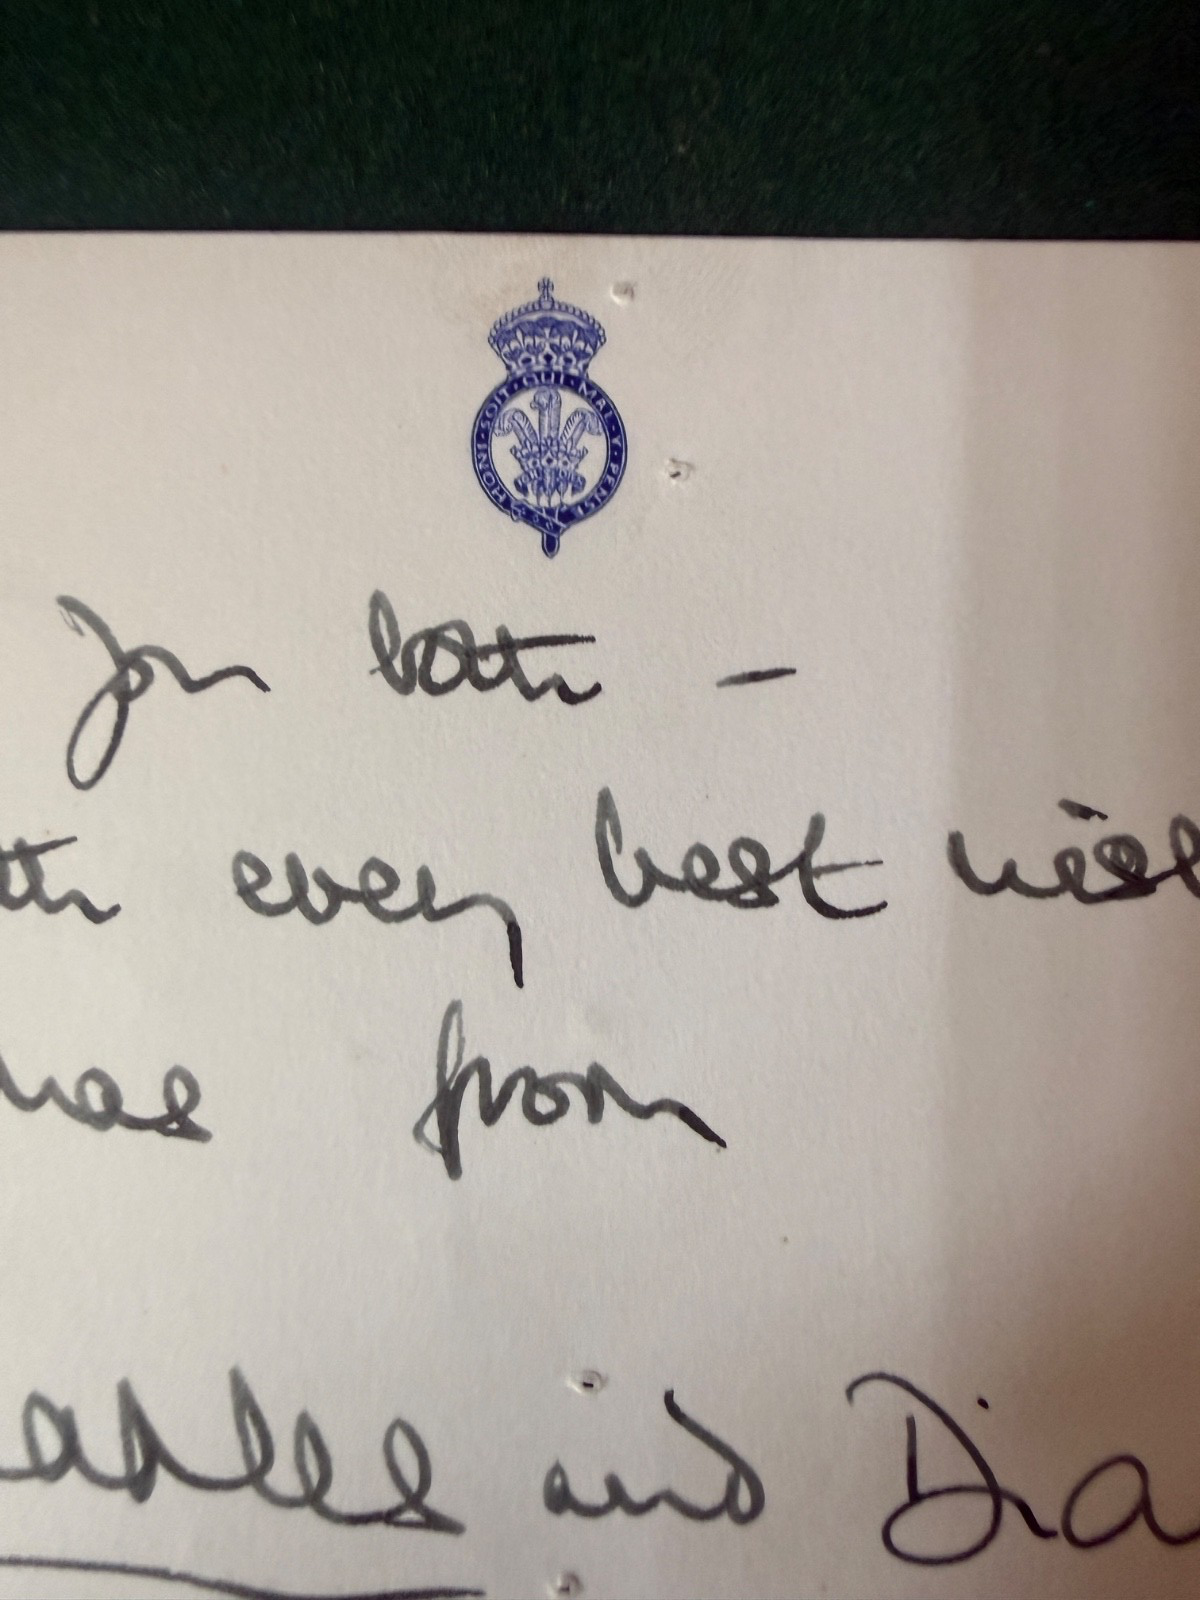 HONI · SOIT · QUI · MAL · Y · PENSE
You both –
th every best wish
mas from
arles and Dia